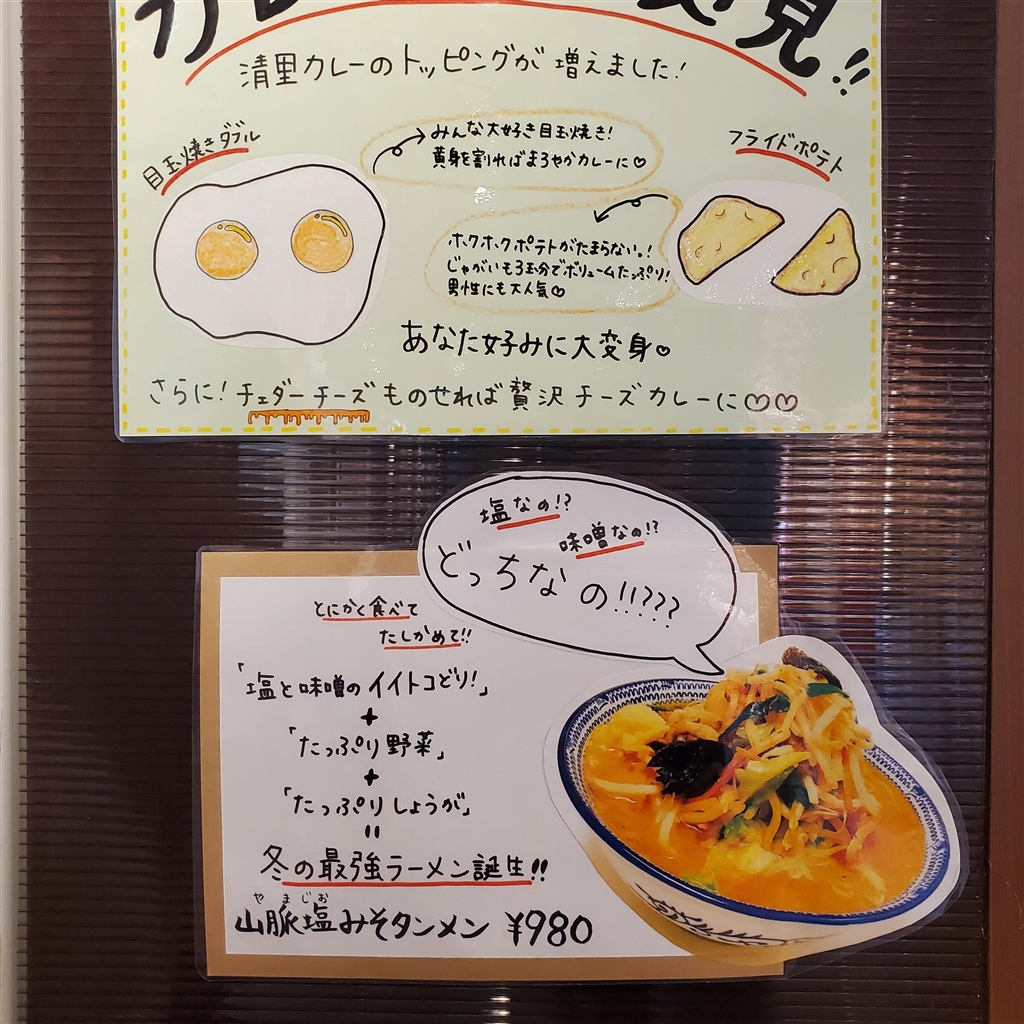 見!!
清里カレーのトッピングが増えました!
目玉焼きダブル
みんな大好き目玉焼き!
黄身を割ればまろやかカレーに♡
フライドポテト
ホクホクポテトがたまらない。!
じゃがいも3玉分でボリュームたっぷり!
男性にも大人気♡
あなた好みに大変身♡
さらに!チェダーチーズものせれば贅沢チーズカレーに♡♡
塩なの!?
味噌なの!?
どっちなの!!???
とにかく食べて
たしかめて!!
「塩と味噌のイイトコどり!」
+
「たっぷり野菜」
+
「たっぷりしょうが」
=
冬の最強ラーメン誕生!!
やまじお
山脈塩みそタンメン ¥980